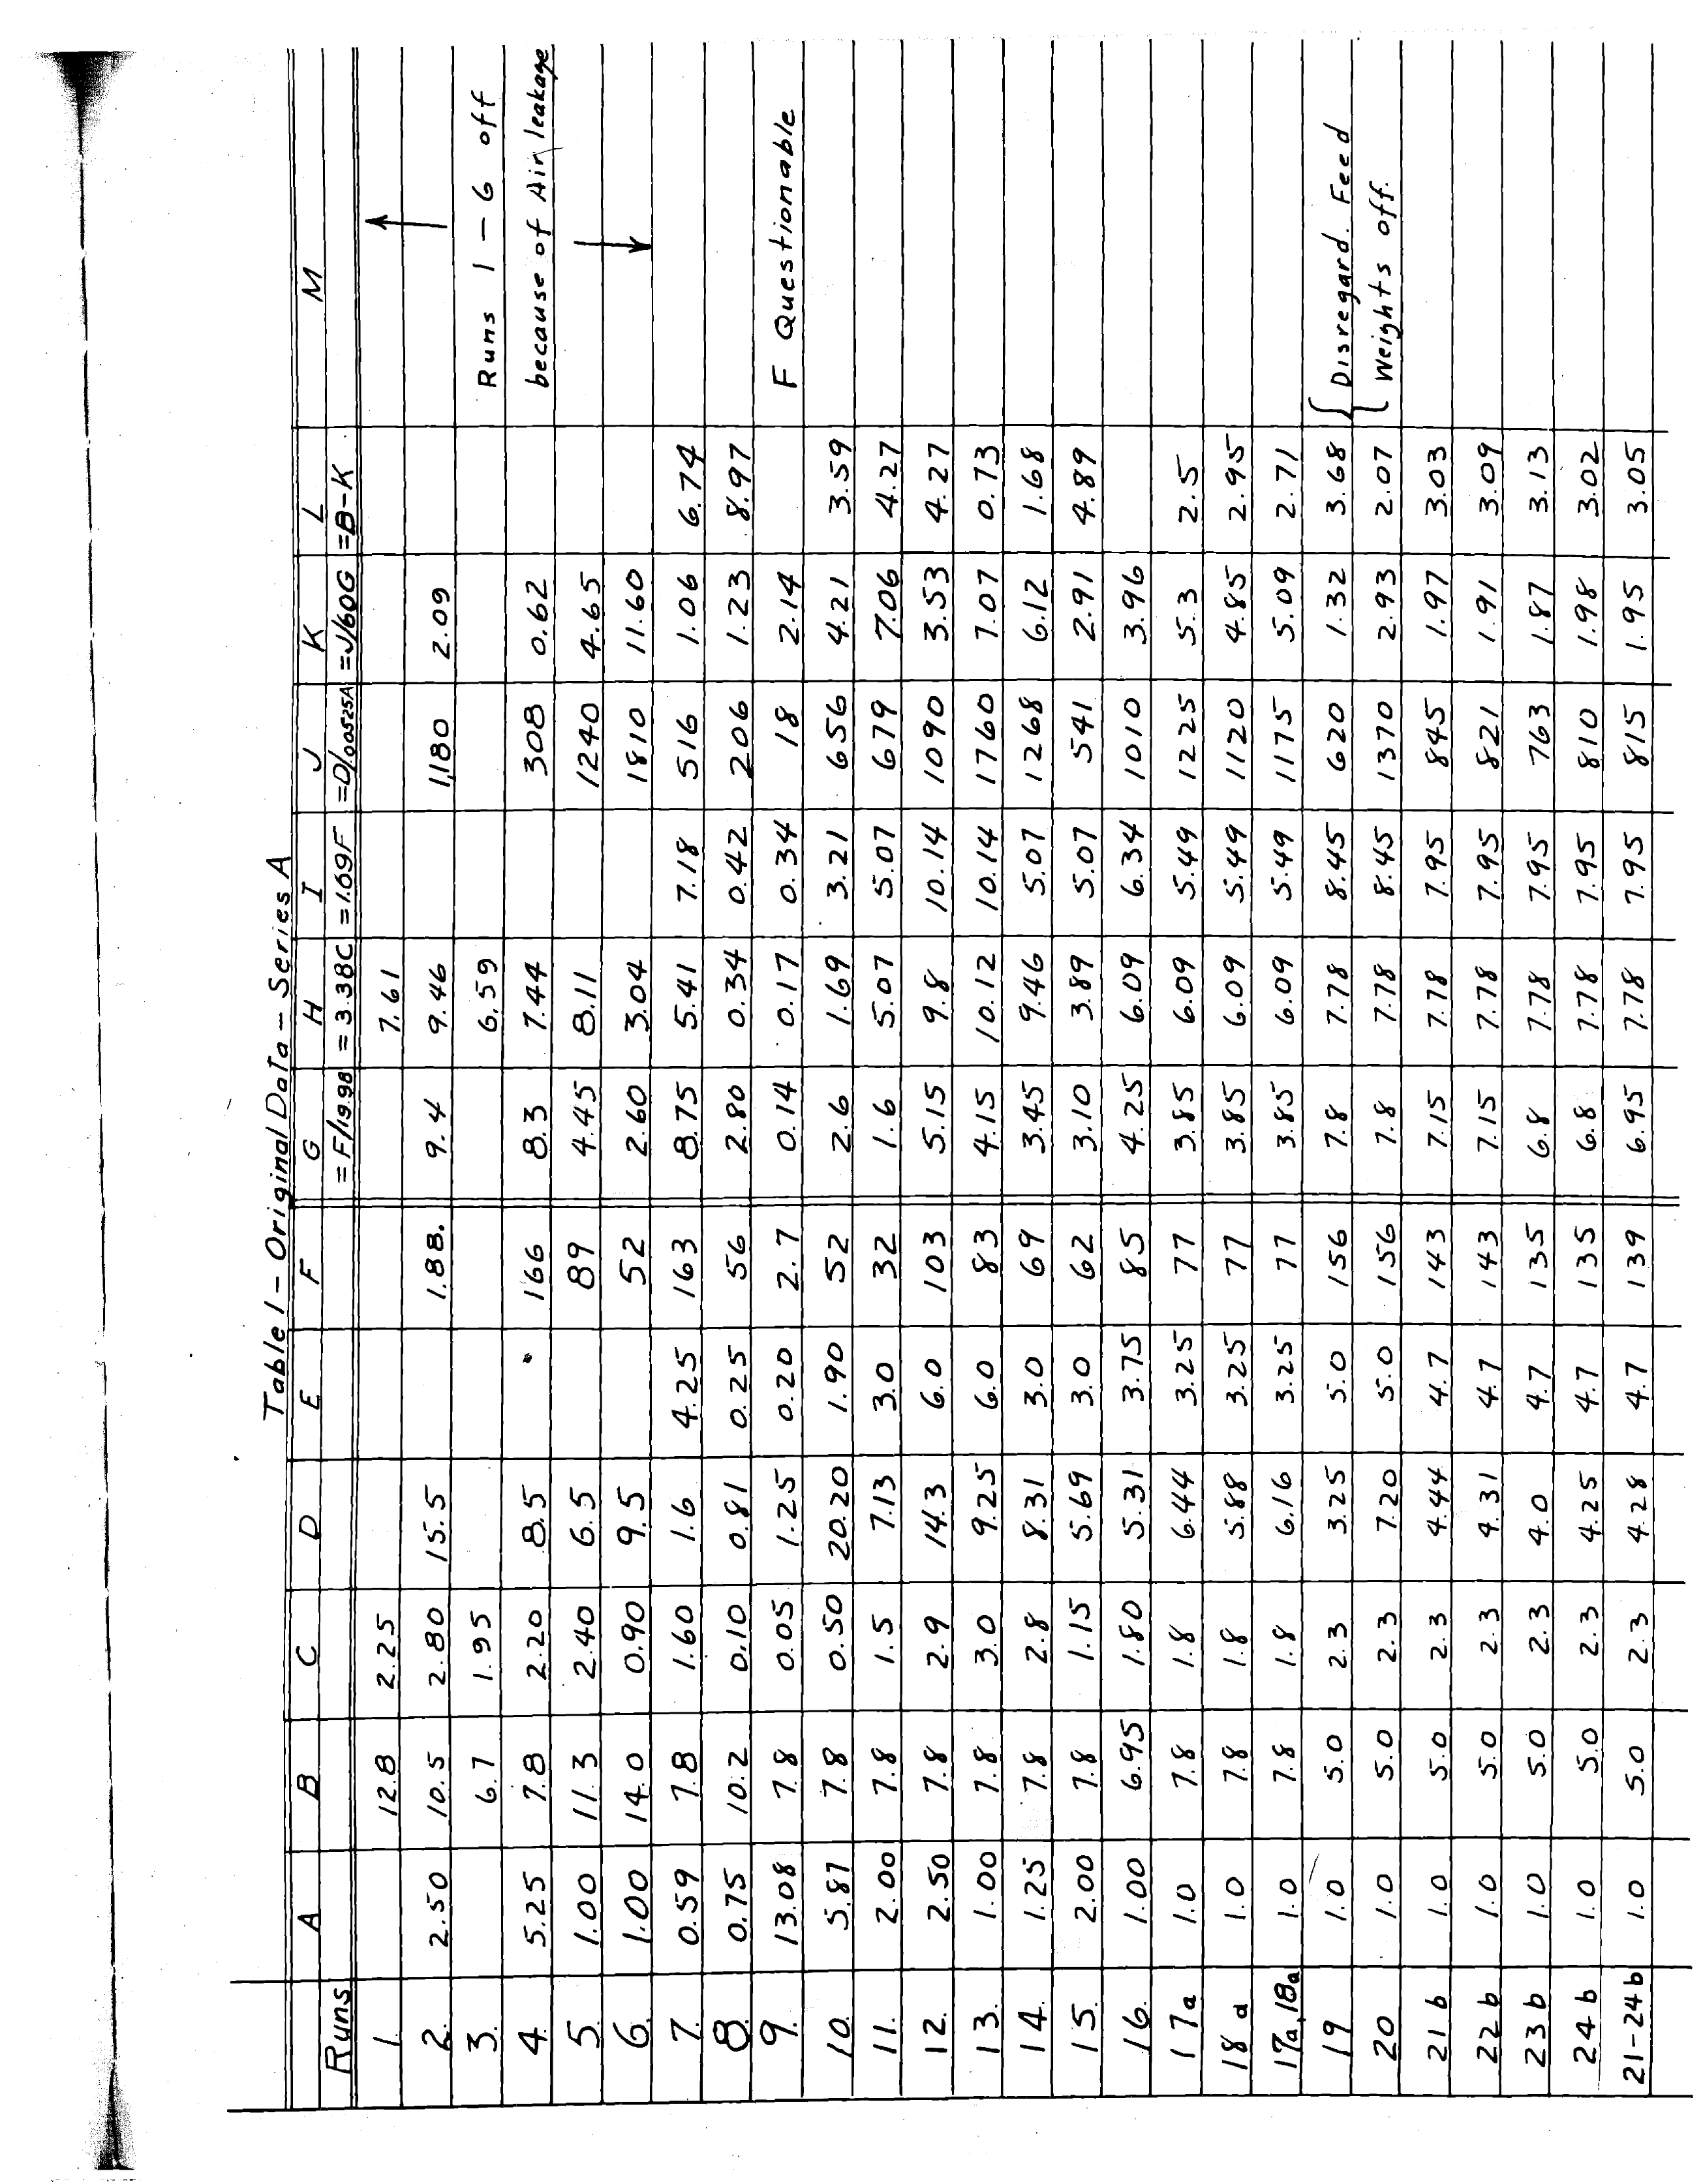 Table 1 - Original Data - Series A
A B C D E F G H I J K L M
Runs = F/19.98 = 3.38C = 1.69F = D/.00525A = J/60G = B-K
1. 12.8 2.25 7.61
2. 2.50 10.5 2.80 15.5 1.88. 9.4 9.46 1,180 2.09
3. 6.7 1.95 6.59 Runs 1 - 6 off
4. 5.25 7.8 2.20 8.5 166 8.3 7.44 308 0.62 because of Air leakage
5. 1.00 11.3 2.40 6.5 89 4.45 8.11 1240 4.65
6. 1.00 14.0 0.90 9.5 52 2.60 3.04 1810 11.60
7. 0.59 7.8 1.60 1.6 4.25 163 8.75 5.41 7.18 516 1.06 6.74
8. 0.75 10.2 0.10 0.81 0.25 56 2.80 0.34 0.42 206 1.23 8.97
9. 13.08 7.8 0.05 1.25 0.20 2.7 0.14 0.17 0.34 18 2.14 F Questionable
10. 5.87 7.8 0.50 20.20 1.90 52 2.6 1.69 3.21 656 4.21 3.59
11. 2.00 7.8 1.5 7.13 3.0 32 1.6 5.07 5.07 679 7.06 4.27
12. 2.50 7.8 2.9 14.3 6.0 103 5.15 9.8 10.14 1090 3.53 4.27
13. 1.00 7.8 3.0 9.25 6.0 83 4.15 10.12 10.14 1760 7.07 0.73
14. 1.25 7.8 2.8 8.31 3.0 69 3.45 9.46 5.07 1268 6.12 1.68
15. 2.00 7.8 1.15 5.69 3.0 62 3.10 3.89 5.07 541 2.91 4.89
16. 1.00 6.95 1.80 5.31 3.75 85 4.25 6.09 6.34 1010 3.96
17a 1.0 7.8 1.8 6.44 3.25 77 3.85 6.09 5.49 1225 5.3 2.5
18a 1.0 7.8 1.8 5.88 3.25 77 3.85 6.09 5.49 1120 4.85 2.95
17a,18a 1.0 7.8 1.8 6.16 3.25 77 3.85 6.09 5.49 1175 5.09 2.71
19 1.0 5.0 2.3 3.25 5.0 156 7.8 7.78 8.45 620 1.32 3.68 Disregard. Feed
20 1.0 5.0 2.3 7.20 5.0 156 7.8 7.78 8.45 1370 2.93 2.07 Weights off.
21 b 1.0 5.0 2.3 4.44 4.7 143 7.15 7.78 7.95 845 1.97 3.03
22 b 1.0 5.0 2.3 4.31 4.7 143 7.15 7.78 7.95 821 1.91 3.09
23 b 1.0 5.0 2.3 4.0 4.7 135 6.8 7.78 7.95 763 1.87 3.13
24 b 1.0 5.0 2.3 4.25 4.7 135 6.8 7.78 7.95 810 1.98 3.02
21-24 b 1.0 5.0 2.3 4.28 4.7 139 6.95 7.78 7.95 815 1.95 3.05